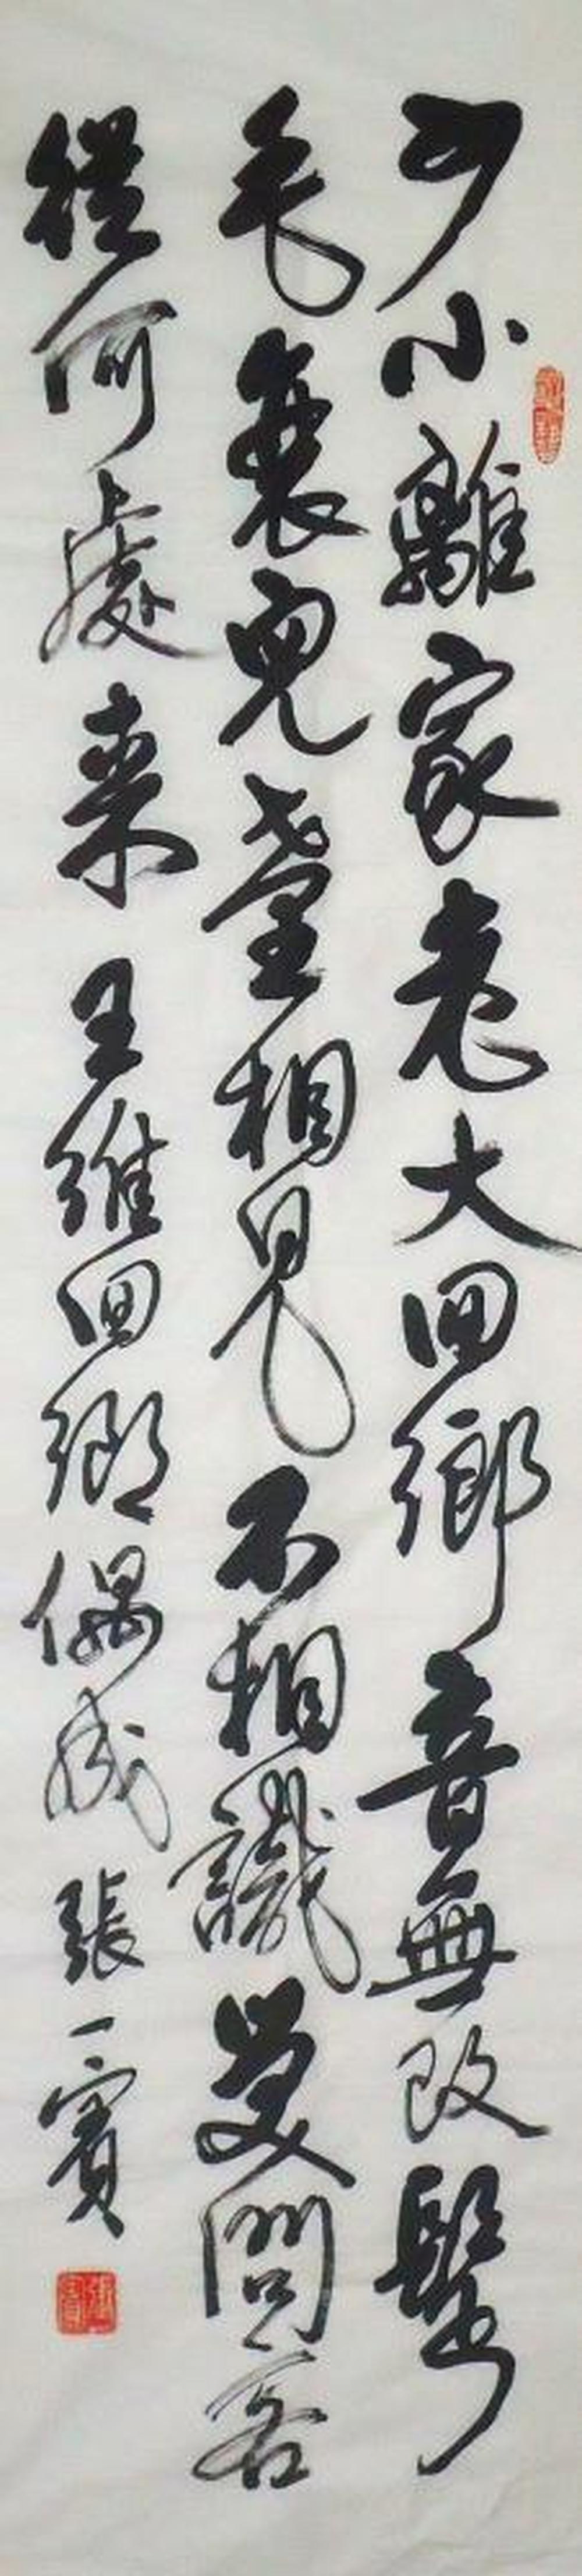 少小離家老大回鄉音無改鬢
毛衰兒童相見不相識笑問客
從何處来王維回鄉偶成張一賓